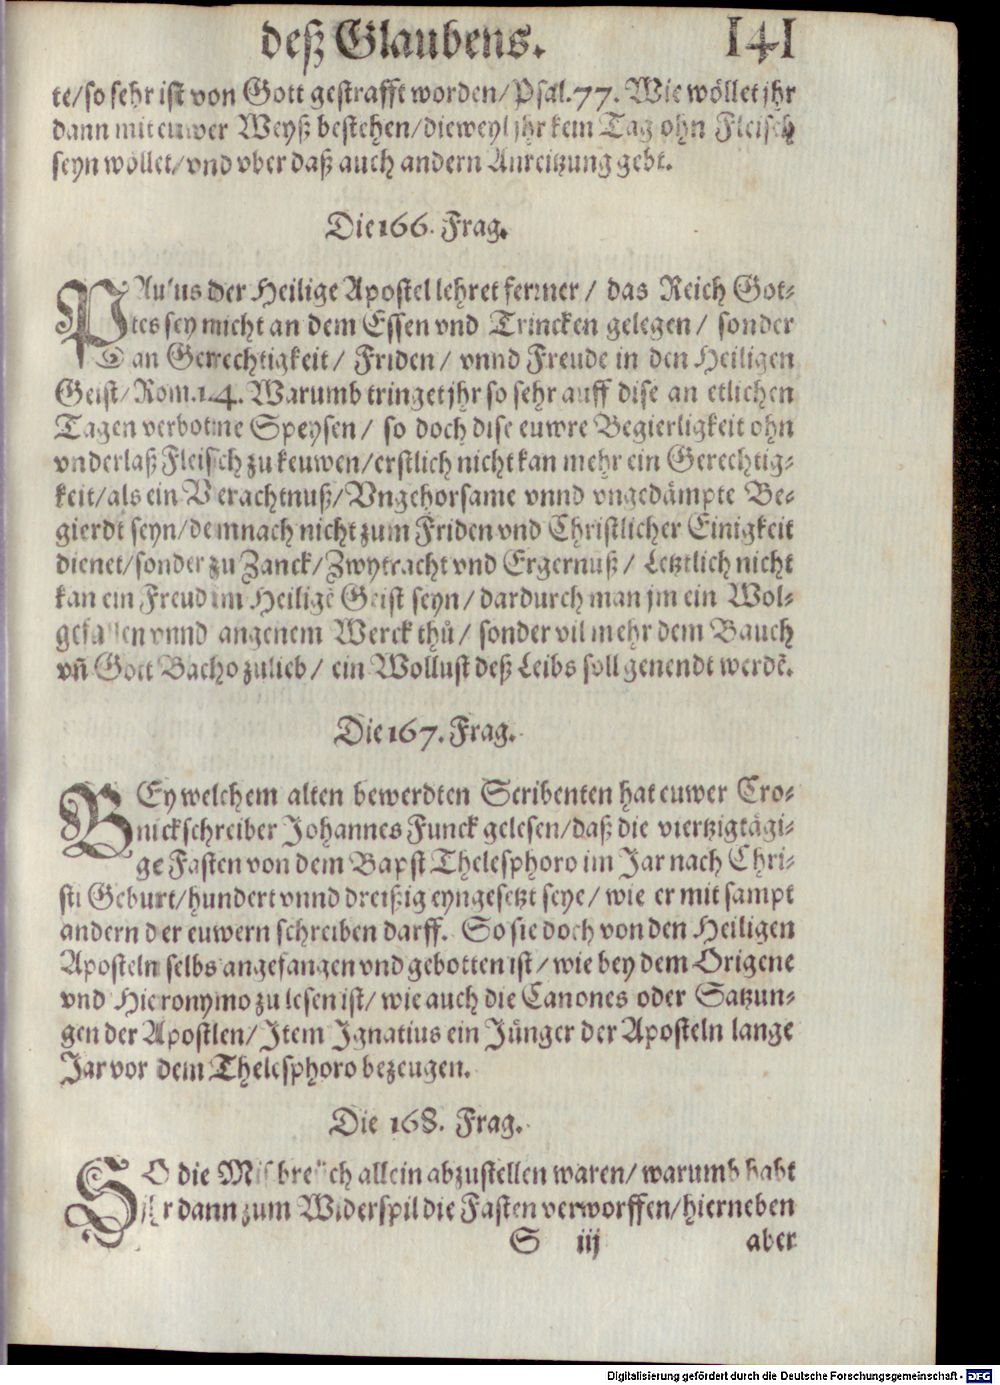 deß Glaubens. 141
te/so sehr ist von Gott gestrafft worden/Psal.77. Wie wöllet jhr
dann mit euwer Weyß bestehen/dieweyl jhr kein Tag ohn Fleisch
seyn wöllet/vnd vber daß auch andern Anreitzung gebt.
Die 166. Frag.
PAulus der Heilige Apostel lehret ferrner/ das Reich Got-
tes sey nicht an dem Essen vnd Trincken gelegen/ sonder
an Gerechtigkeit/ Friden/ vnnd Freude in den Heiligen
Geist/Rom.14. Warumb tringet jhr so sehr auff dise an etlichen
Tagen verbottne Speysen/ so doch dise euwre Begierligkeit ohn
vnderlaß Fleisch zu keuwen/erstlich nicht kan mehr ein Gerechtig-
keit/als ein Verachtnuß/Vngehorsame vnnd vngedämpte Be-
gierdt seyn/demnach nicht zum Friden vnd Christlicher Einigkeit
dienet/sonder zu Zanck/Zwytracht vnd Ergernuß/ Letztlich nicht
kan ein Freud im Heiligē Geist seyn/dardurch man jm ein Wol-
gefallen vnnd angenem Werck thů/ sonder vil mehr dem Bauch
vñ Gott Bacho zu lieb/ ein Wollust deß Leibs soll genendt werdē.
Die 167. Frag.
BEy welchem alten bewerdten Scribenten hat euwer Cro-
nickschreiber Johannes Funck gelesen/daß die viertzigtägi-
ge Fasten von dem Bapst Thelesphoro im Jar nach Chri-
sti Geburt/hundert vnnd dreißig eyngesetzt seye/ wie er mit sampt
andern der euwern schreiben darff. So sie doch von den Heiligen
Aposteln selbs angefangen vnd gebotten ist/ wie bey dem Origene
vnd Hieronymo zu lesen ist/ wie auch die Canones oder Satzun-
gen der Apostlen/Item Ignatius ein Jünger der Aposteln lange
Jar vor dem Thelesphoro bezeugen.
Die 168. Frag.
SO die Misbreüch allein abzustellen waren/ warumb habt
jhr dann zum Widerspil die Fasten verworffen/hierneben
S iij aber
Digitalisierung gefördert durch die Deutsche Forschungsgemeinschaft - DFG